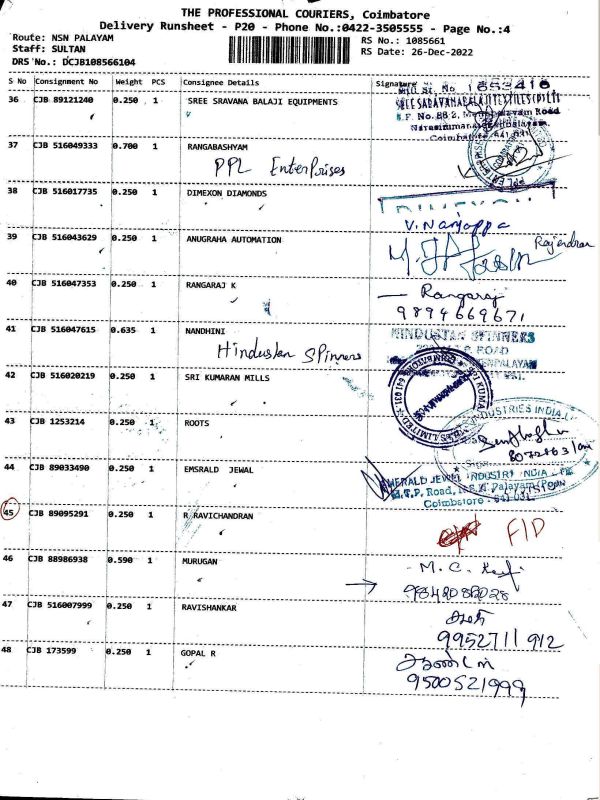 THE PROFESSIONAL COURIERS, Coimbatore
Delivery Runsheet - P20 - Phone No.:0422-3505555 - Page No.:4
Route: NSN PALAYAM
Staff: SULTAN
DRS No.: DCJB108566104
RS No.: 1085661
RS Date: 26-Dec-2022
S No Consignment No Weight PCS Consignee Details Signature
36 CJB 89121240 0.250 1 SREE SRAVANA BALAJI EQUIPMENTS
1653416
Coimbatore 641 031
37 CJB 516049333 0.700 1 RANGABASHYAM
PPL EnterPrises
38 CJB 516017735 0.250 1 DIMEXON DIAMONDS
V. Nanjappa
39 CJB 516043629 0.250 1 ANUGRAHA AUTOMATION
Rajendran
40 CJB 516047353 0.250 1 RANGARAJ K
Rangaraj
9894669671
41 CJB 516047615 0.635 1 NANDHINI
Hindustan SPinners
HINDUSTAN SPINNERS
42 CJB 516020219 0.250 1 SRI KUMARAN MILLS
43 CJB 1253214 0.250 1 ROOTS
44 CJB 89033490 0.250 1 EMSRALD JEWAL
EMERALD JEWEL INDUSTRY INDIA
Coimbatore - 641 031
45 CJB 89095291 0.250 1 R RAVICHANDRAN
FID
46 CJB 88986938 0.590 1 MURUGAN
M. C.
9842082028
47 CJB 516007999 0.250 1 RAVISHANKAR
9952711912
48 CJB 173599 0.250 1 GOPAL R
9500521999